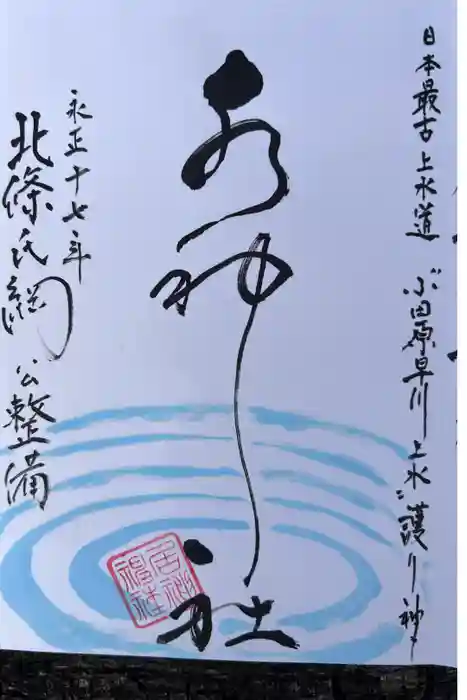 日本最古上水道 小田原早川上水 護り神
水神社
居神
神社
永正十七年
北條氏綱公整備